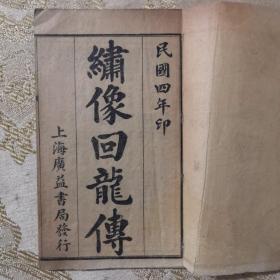 民國四年印
繡像回龍傳
上海廣益書局發行